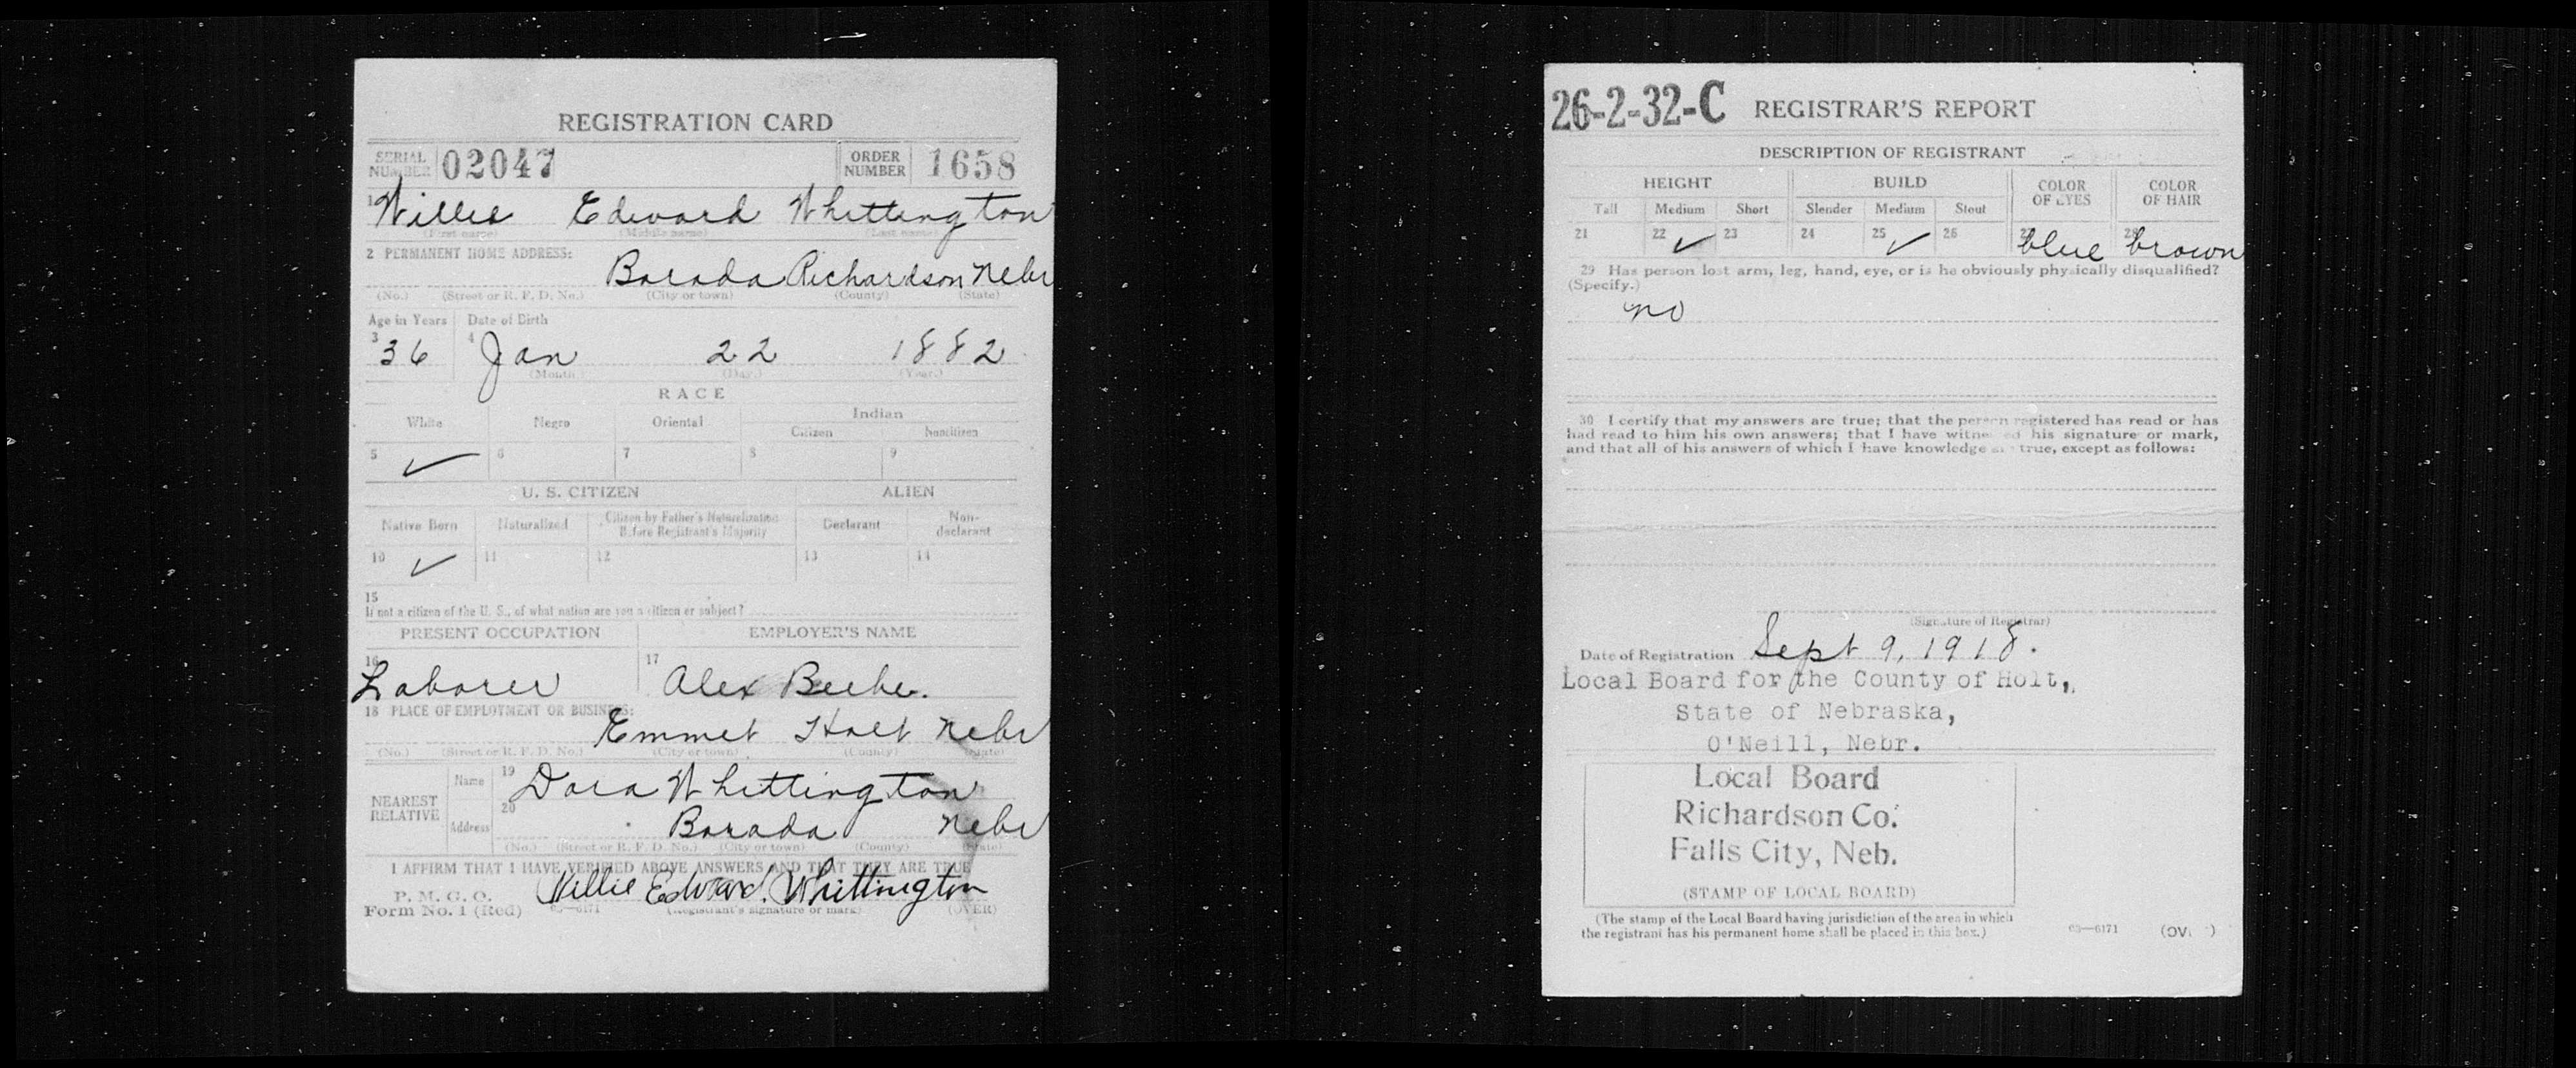 REGISTRATION CARD
SERIAL NUMBER 02047 ORDER NUMBER 1658
1 Willie Edward Whittington
(First name) (Middle name) (Last name)
2 PERMANENT HOME ADDRESS:
Barada Richardson Nebr
(No.) (Street or R. F. D. No.) (City or town) (County) (State)
Age in Years Date of Birth
3 36 4 Jan 22 1882
(Month.) (Day.) (Year.)
RACE
White Negro Oriental Indian
Citizen Noncitizen
5 ✓ 6 7 8 9
U. S. CITIZEN ALIEN
Native Born Naturalized Citizen by Father's Naturalization Before Registrant's Majority Declarant Non-declarant
10 ✓ 11 12 13 14
15
If not a citizen of the U. S., of what nation are you a citizen or subject?
PRESENT OCCUPATION EMPLOYER'S NAME
16 Laborer 17 Alex
18 PLACE OF EMPLOYMENT OR BUSINESS:
Emmet Holt Nebr
(No.) (Street or R. F. D. No.) (City or town) (County) (State)
NEAREST RELATIVE Name 19 Dora Whittington
Address 20 Barada Nebr
(No.) (Street or R. F. D. No.) (City or town) (County) (State)
I AFFIRM THAT I HAVE VERIFIED ABOVE ANSWERS AND THAT THEY ARE TRUE
P. M. G. O.
Form No. 1 (Red) 63—6171 Willie Edward Whittington
(Registrant's signature or mark) (OVER)
26-2-32-C REGISTRAR'S REPORT
DESCRIPTION OF REGISTRANT
HEIGHT BUILD COLOR OF EYES COLOR OF HAIR
Tall Medium Short Slender Medium Stout
21 22 ✓ 23 24 25 ✓ 26 27 blue 28 brown
29 Has person lost arm, leg, hand, eye, or is he obviously physically disqualified?
(Specify.)
no
30 I certify that my answers are true; that the person registered has read or has
had read to him his own answers; that I have witnessed his signature or mark,
and that all of his answers of which I have knowledge are true, except as follows:
(Signature of Registrar)
Date of Registration Sept 9, 1918.
Local Board for the County of Holt,
State of Nebraska,
O'Neill, Nebr.
Local Board
Richardson Co.
Falls City, Neb.
(STAMP OF LOCAL BOARD)
(The stamp of the Local Board having jurisdiction of the area in which
the registrant has his permanent home shall be placed in this box.) 63—6171 (OVER)